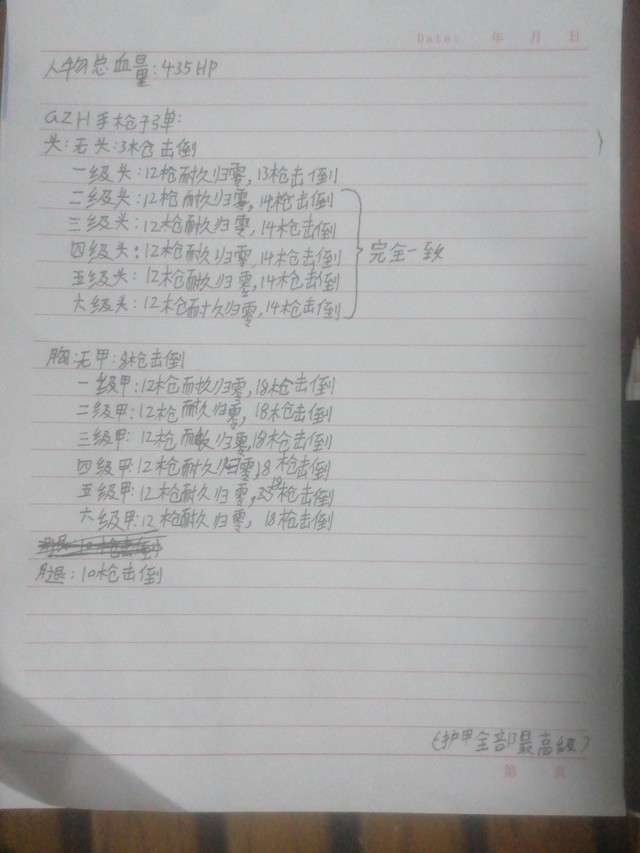 Date: 年 月 日
人物总血量:435HP
GZH手枪子弹:
头:无头:3枪击倒
一级头:12枪耐久归零,13枪击倒
二级头:12枪耐久归零,14枪击倒
三级头:12枪耐久归零,14枪击倒
四级头:12枪耐久归零,14枪击倒
完全一致
五级头:12枪耐久归零,14枪击倒
六级头:12枪耐久归零,14枪击倒
胸:无甲:8枪击倒
一级甲:12枪耐久归零,18枪击倒
二级甲:12枪耐久归零,18枪击倒
三级甲:12枪耐久归零,18枪击倒
四级甲:12枪耐久归零,18枪击倒
五级甲:12枪耐久归零,18枪击倒
六级甲:12枪耐久归零,18枪击倒
腿:10枪击倒
(护甲全部最高级)
第 页